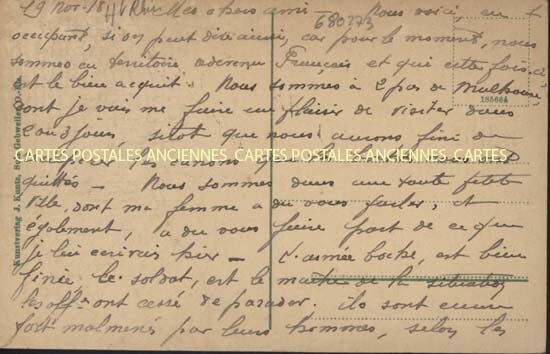 19 Nov-18 H. Rhin Mes chers amis - Nous voici, en t
680273
occupant, si on peut dire ainsi, car pour le moment, nous
sommes en territoire redevenu Français et qui cette fois-ci
est le bien acquit. Nous sommes à 2 pas de Mulhouse,
18566A
dont je vais me faire un plaisir de visiter dans
2 ou 3 jours sitot que nous aurons fini de
les canons que
CARTES POSTALES ANCIENNES. CARTES POSTALES ANCIENNES. CARTES
quittés - Nous sommes dans une toute petite
Ville dont ma femme a du vous parler, et
également, a du vous faire part de ce que
je lui écrivais hier - L'armée boche, est bien
finie, le soldat, est le maître de la situation
les off- ont cessé de parader. ils sont même
fort malmenés par leurs hommes, selon les
Kunstverlag J. Kuntz, Sohn, Gebweiler, O.-Els.